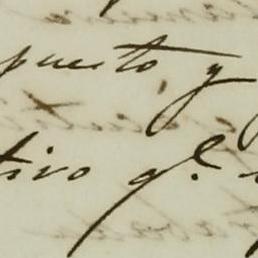 puesto y
tivo ql.